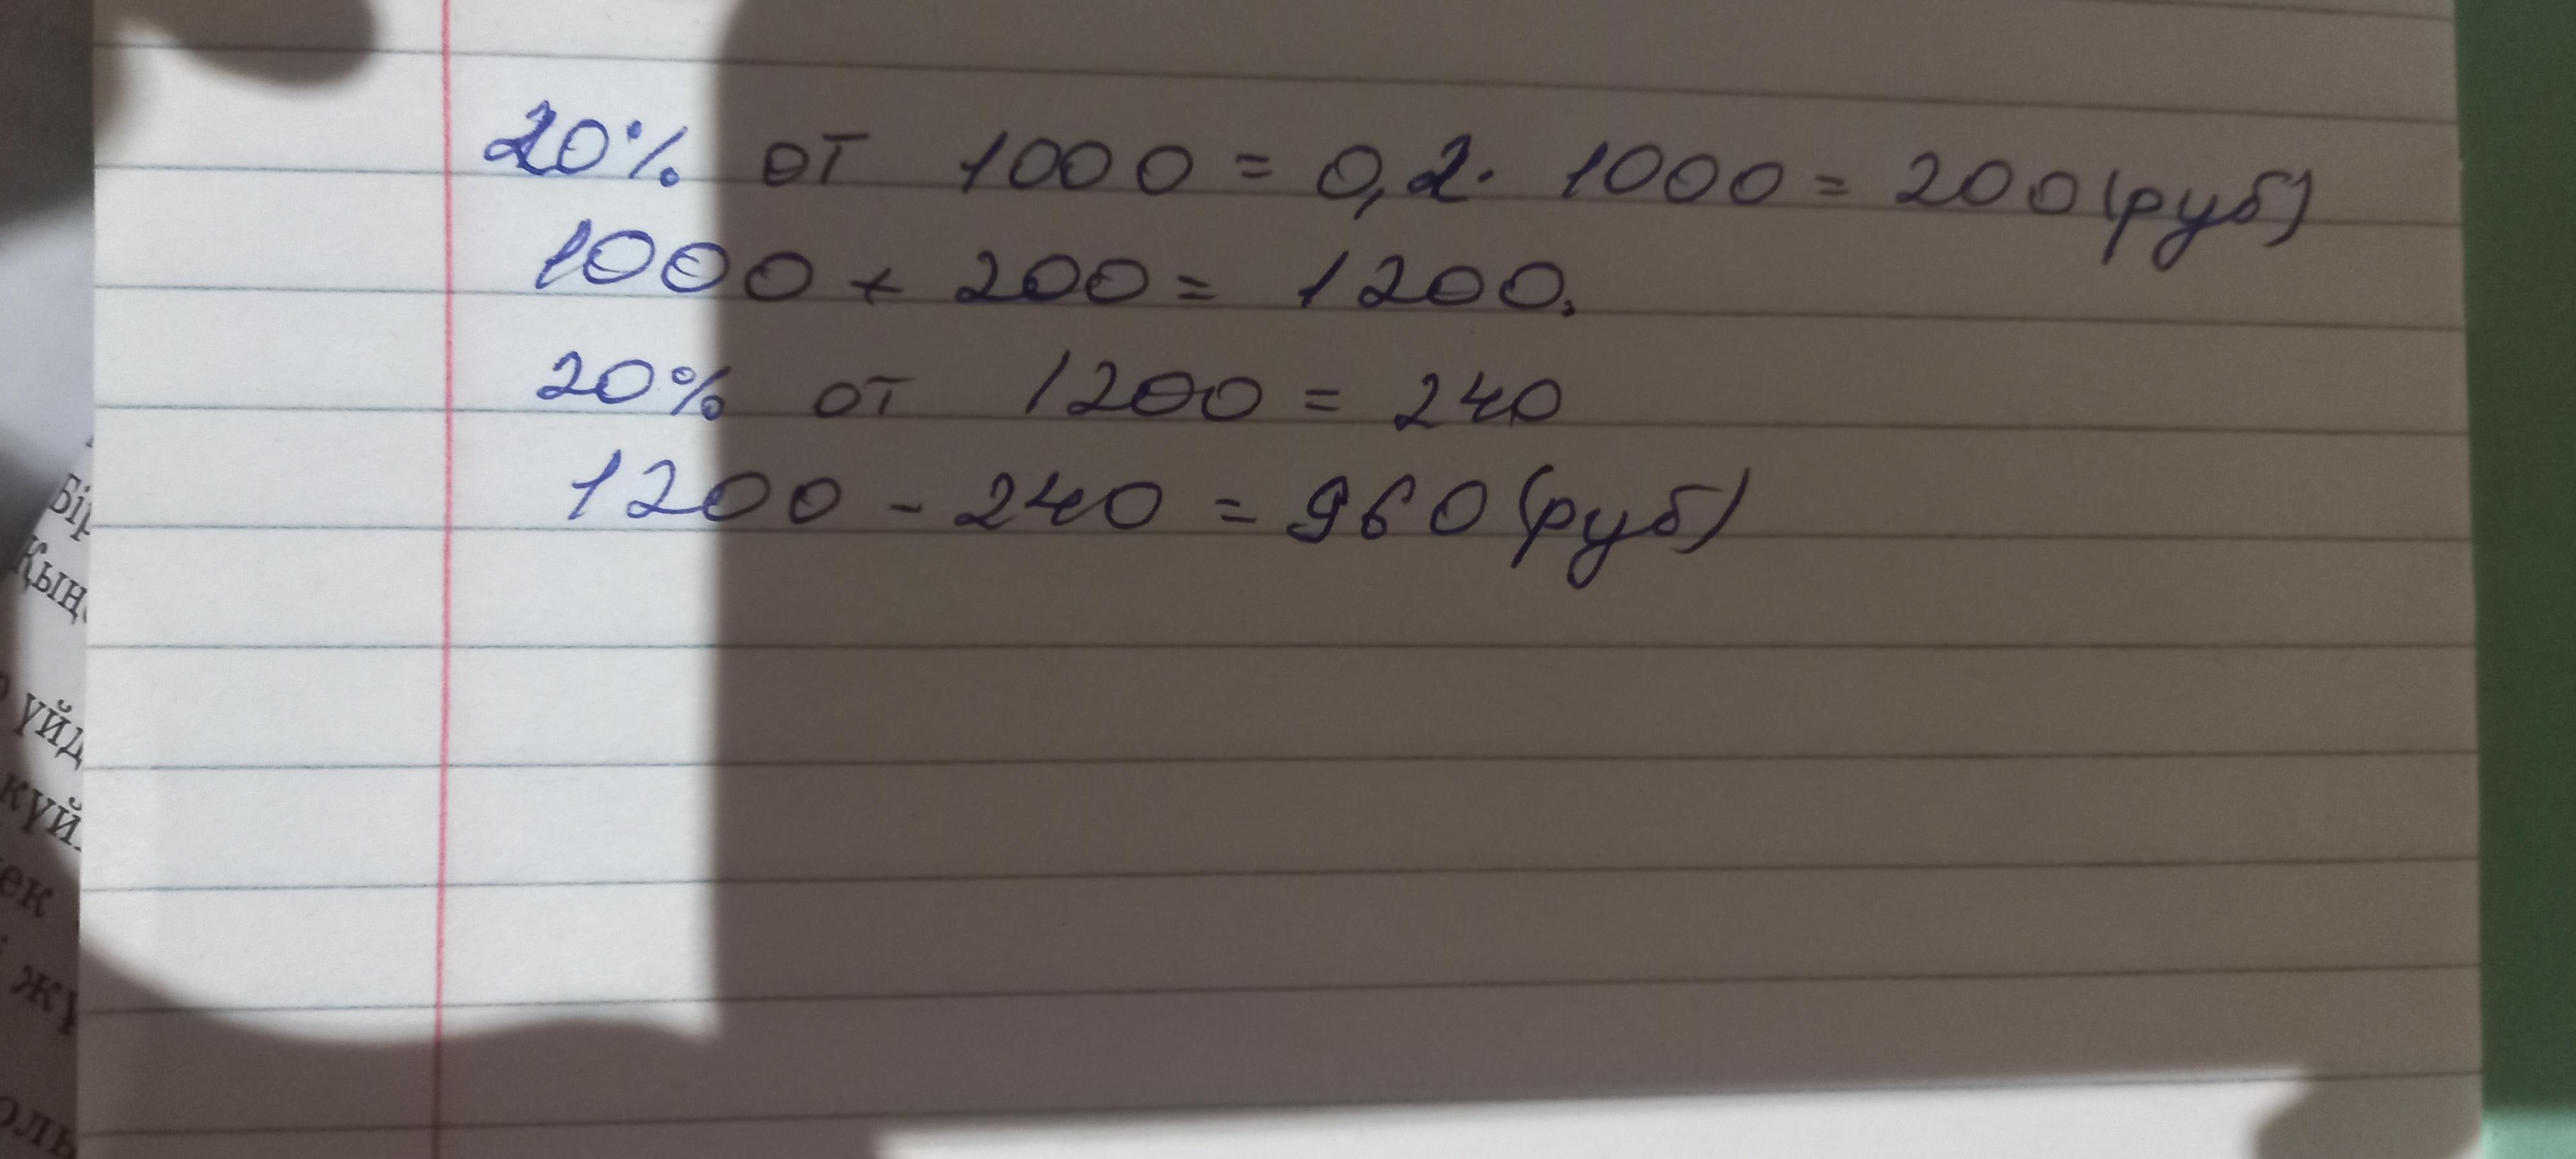 20% от 1000 = 0,2 · 1000 = 200 (руб)
1000 + 200 = 1200.
20% от 1200 = 240
1200 - 240 = 960 (руб)
үйд
күй
ек